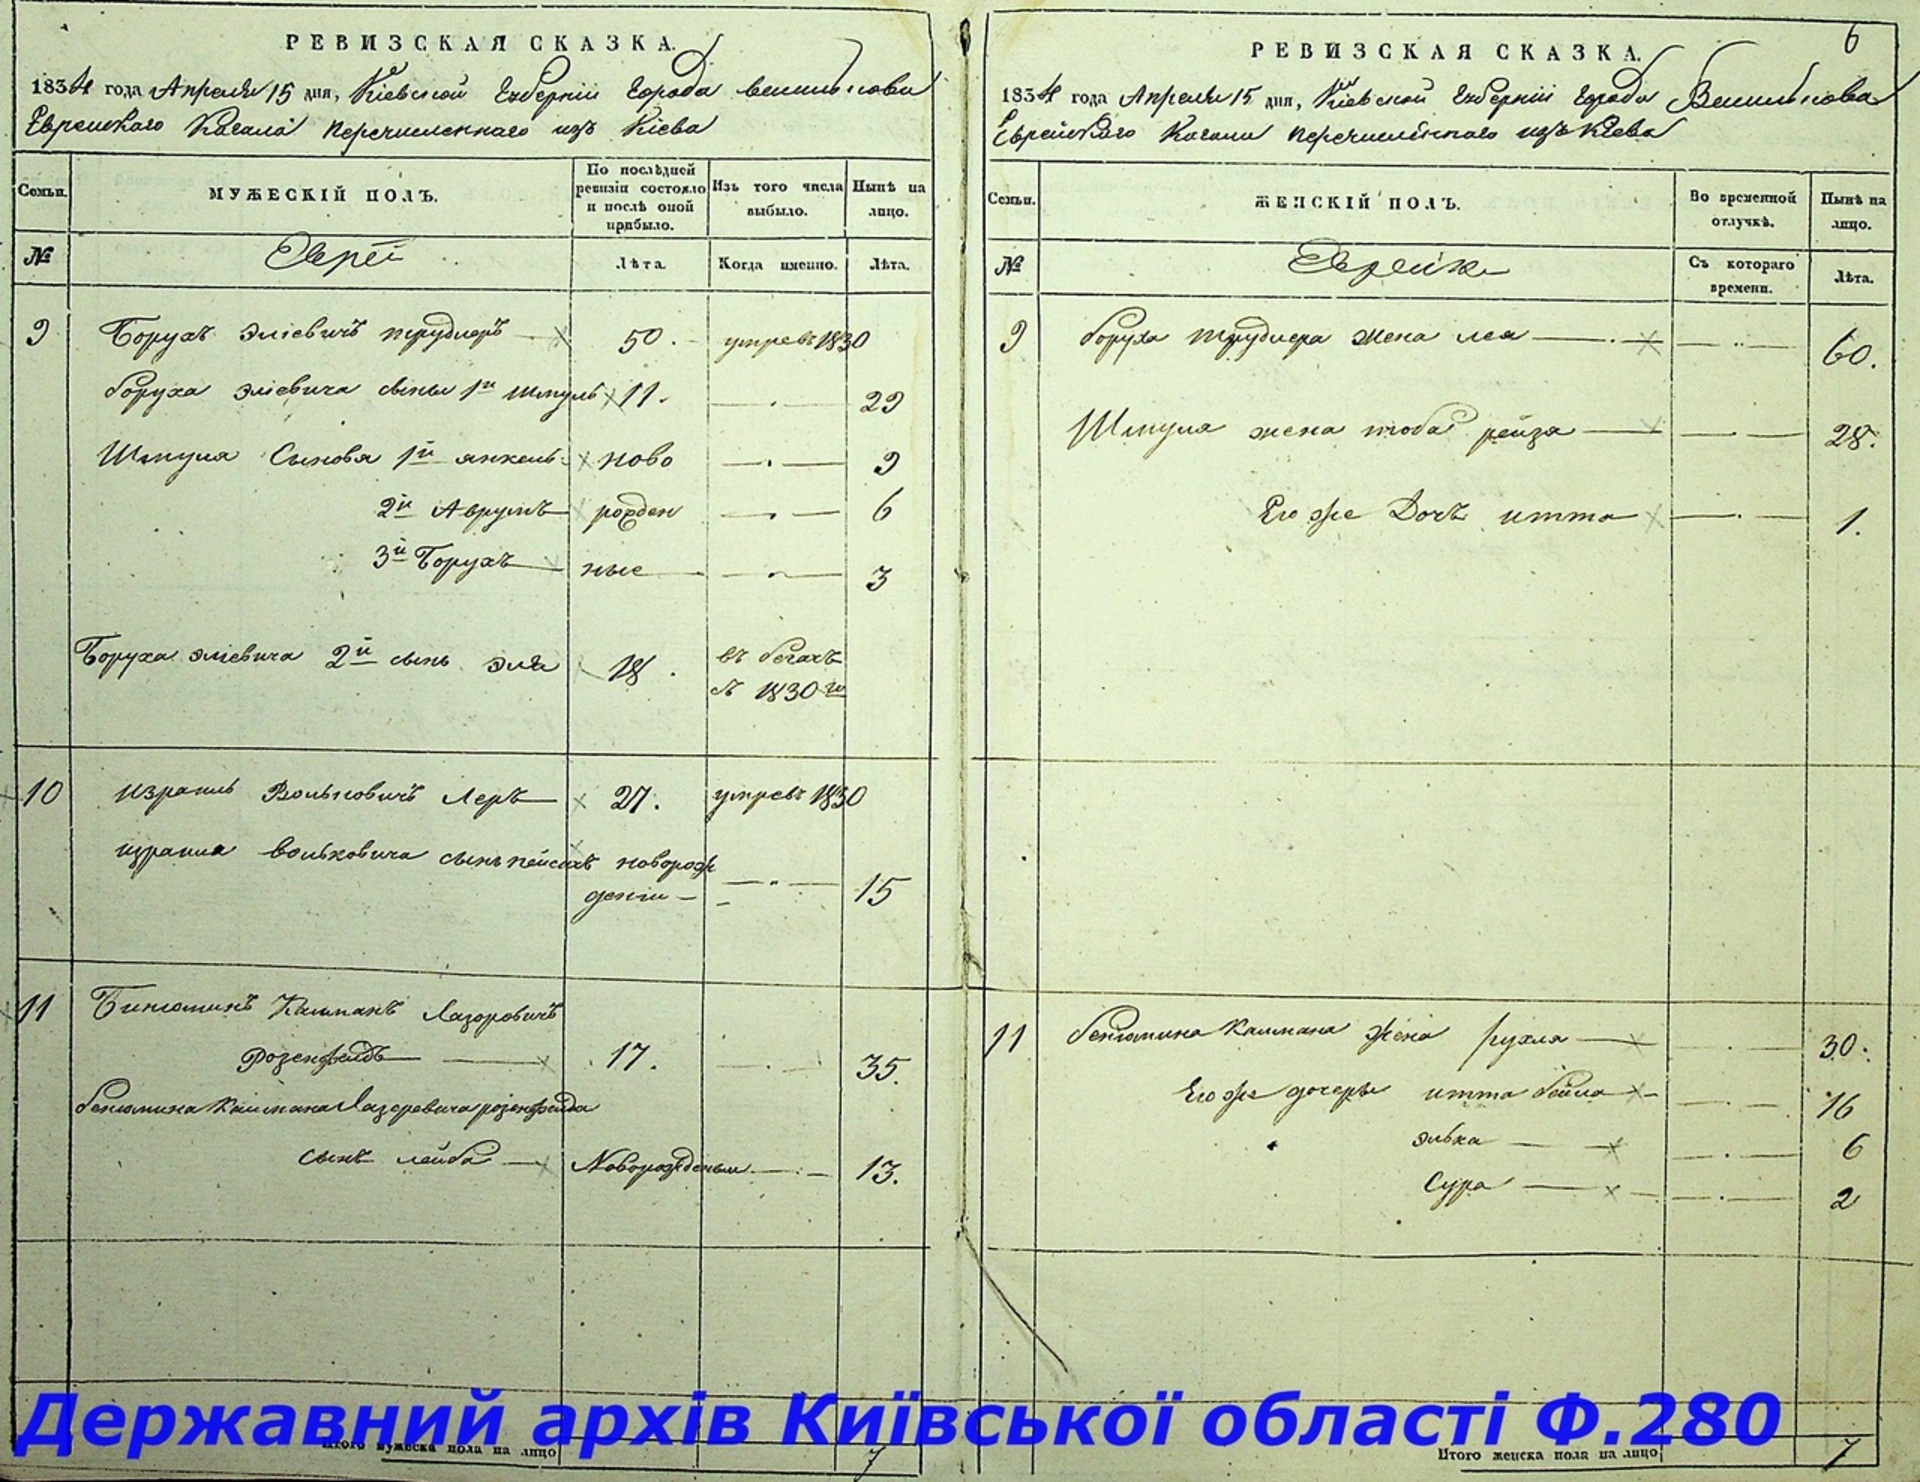 РЕВИЗСКАЯ СКАЗКА.
1834 года Апреля 15 дня, Кіевской Губерніи Города Василькова
Еврейскаго Кагала перечисленнаго изъ Кіева
Семьи.
МУЖЕСКІЙ ПОЛЪ.
По послѣдней ревизіи состояло и послѣ оной прибыло.
Изъ того числа выбыло.
Нынѣ на лицо.
№
Евреи
Лѣта.
Когда именно.
Лѣта.
9 Борухъ Эліевичъ трублеръ 50. умре въ 1830
Боруха Эліевича сыны 1й Шмуль 11. 29
Шмуля Сыновя 1й янкель ново 9
2й Аврумъ рожден 6
3й Борухъ ные 3
Боруха Эліевича 2й сынъ эля 18. въ бегахъ
съ 1830 го
10 Израиль Вольковичъ Леръ 27. умре въ 1830
израиля вольковича сынъ пейсахъ новорож
деніи 15
11 Биніоминъ Калманъ Лазоровичъ
розенфелдъ 17. 35.
беніомина Калмана Лазоревича розенфелда
сынъ лейба Новорожденыи 13.
Итого мужеска пола на лицо 7
6
РЕВИЗСКАЯ СКАЗКА.
1834 года Апреля 15 дня, Кіевской Губерніи Города Василькова
Еврейскаго Кагала перечисленнаго изъ Кіева
Семьи.
ЖЕНСКІЙ ПОЛЪ.
Во временной отлучкѣ.
Нынѣ на лицо.
№
Еврейки
Съ котораго времени.
Лѣта.
9 Боруха трублера жена лея 60.
Шмуля жена тоба рейза 28.
Его же Дочь итта 1.
11 беніомина Калмана жена рухля 30.
Его же дочеры итта бейла 16
элька 6
Сура 2
Итого женска пола на лицо 7
Державний архів Київської області Ф.280